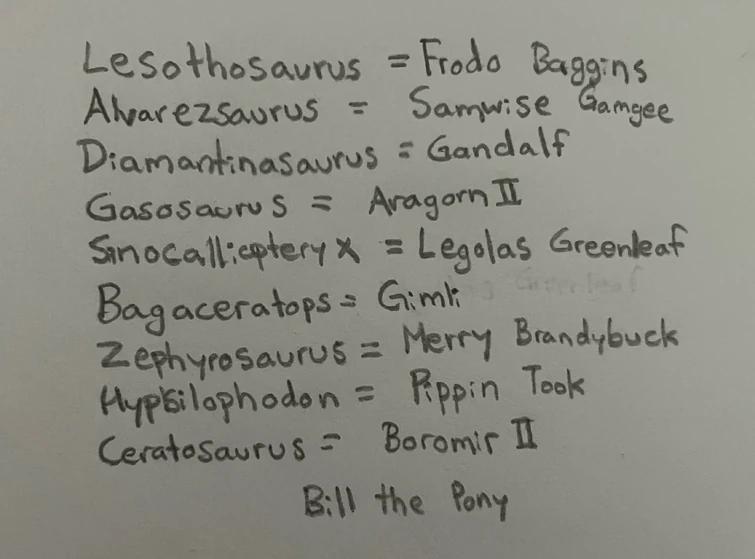 Lesothosaurus = Frodo Baggins
Alvarezsaurus = Samwise Gamgee
Diamantinasaurus = Gandalf
Gasosaurus = Aragorn II
Sinocalliopteryx = Legolas Greenleaf
Bagaceratops = Gimli
Zephyrosaurus = Merry Brandybuck
Hypsilophodon = Pippin Took
Ceratosaurus = Boromir II
Bill the Pony